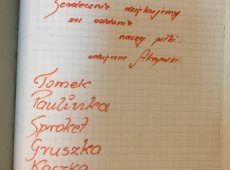 Serdecznie dziękujemy
za oddanie
naszej piłki.
wdzięczne
Tomek
Paulinka
Sprokeł
Gruszka
Kaczka